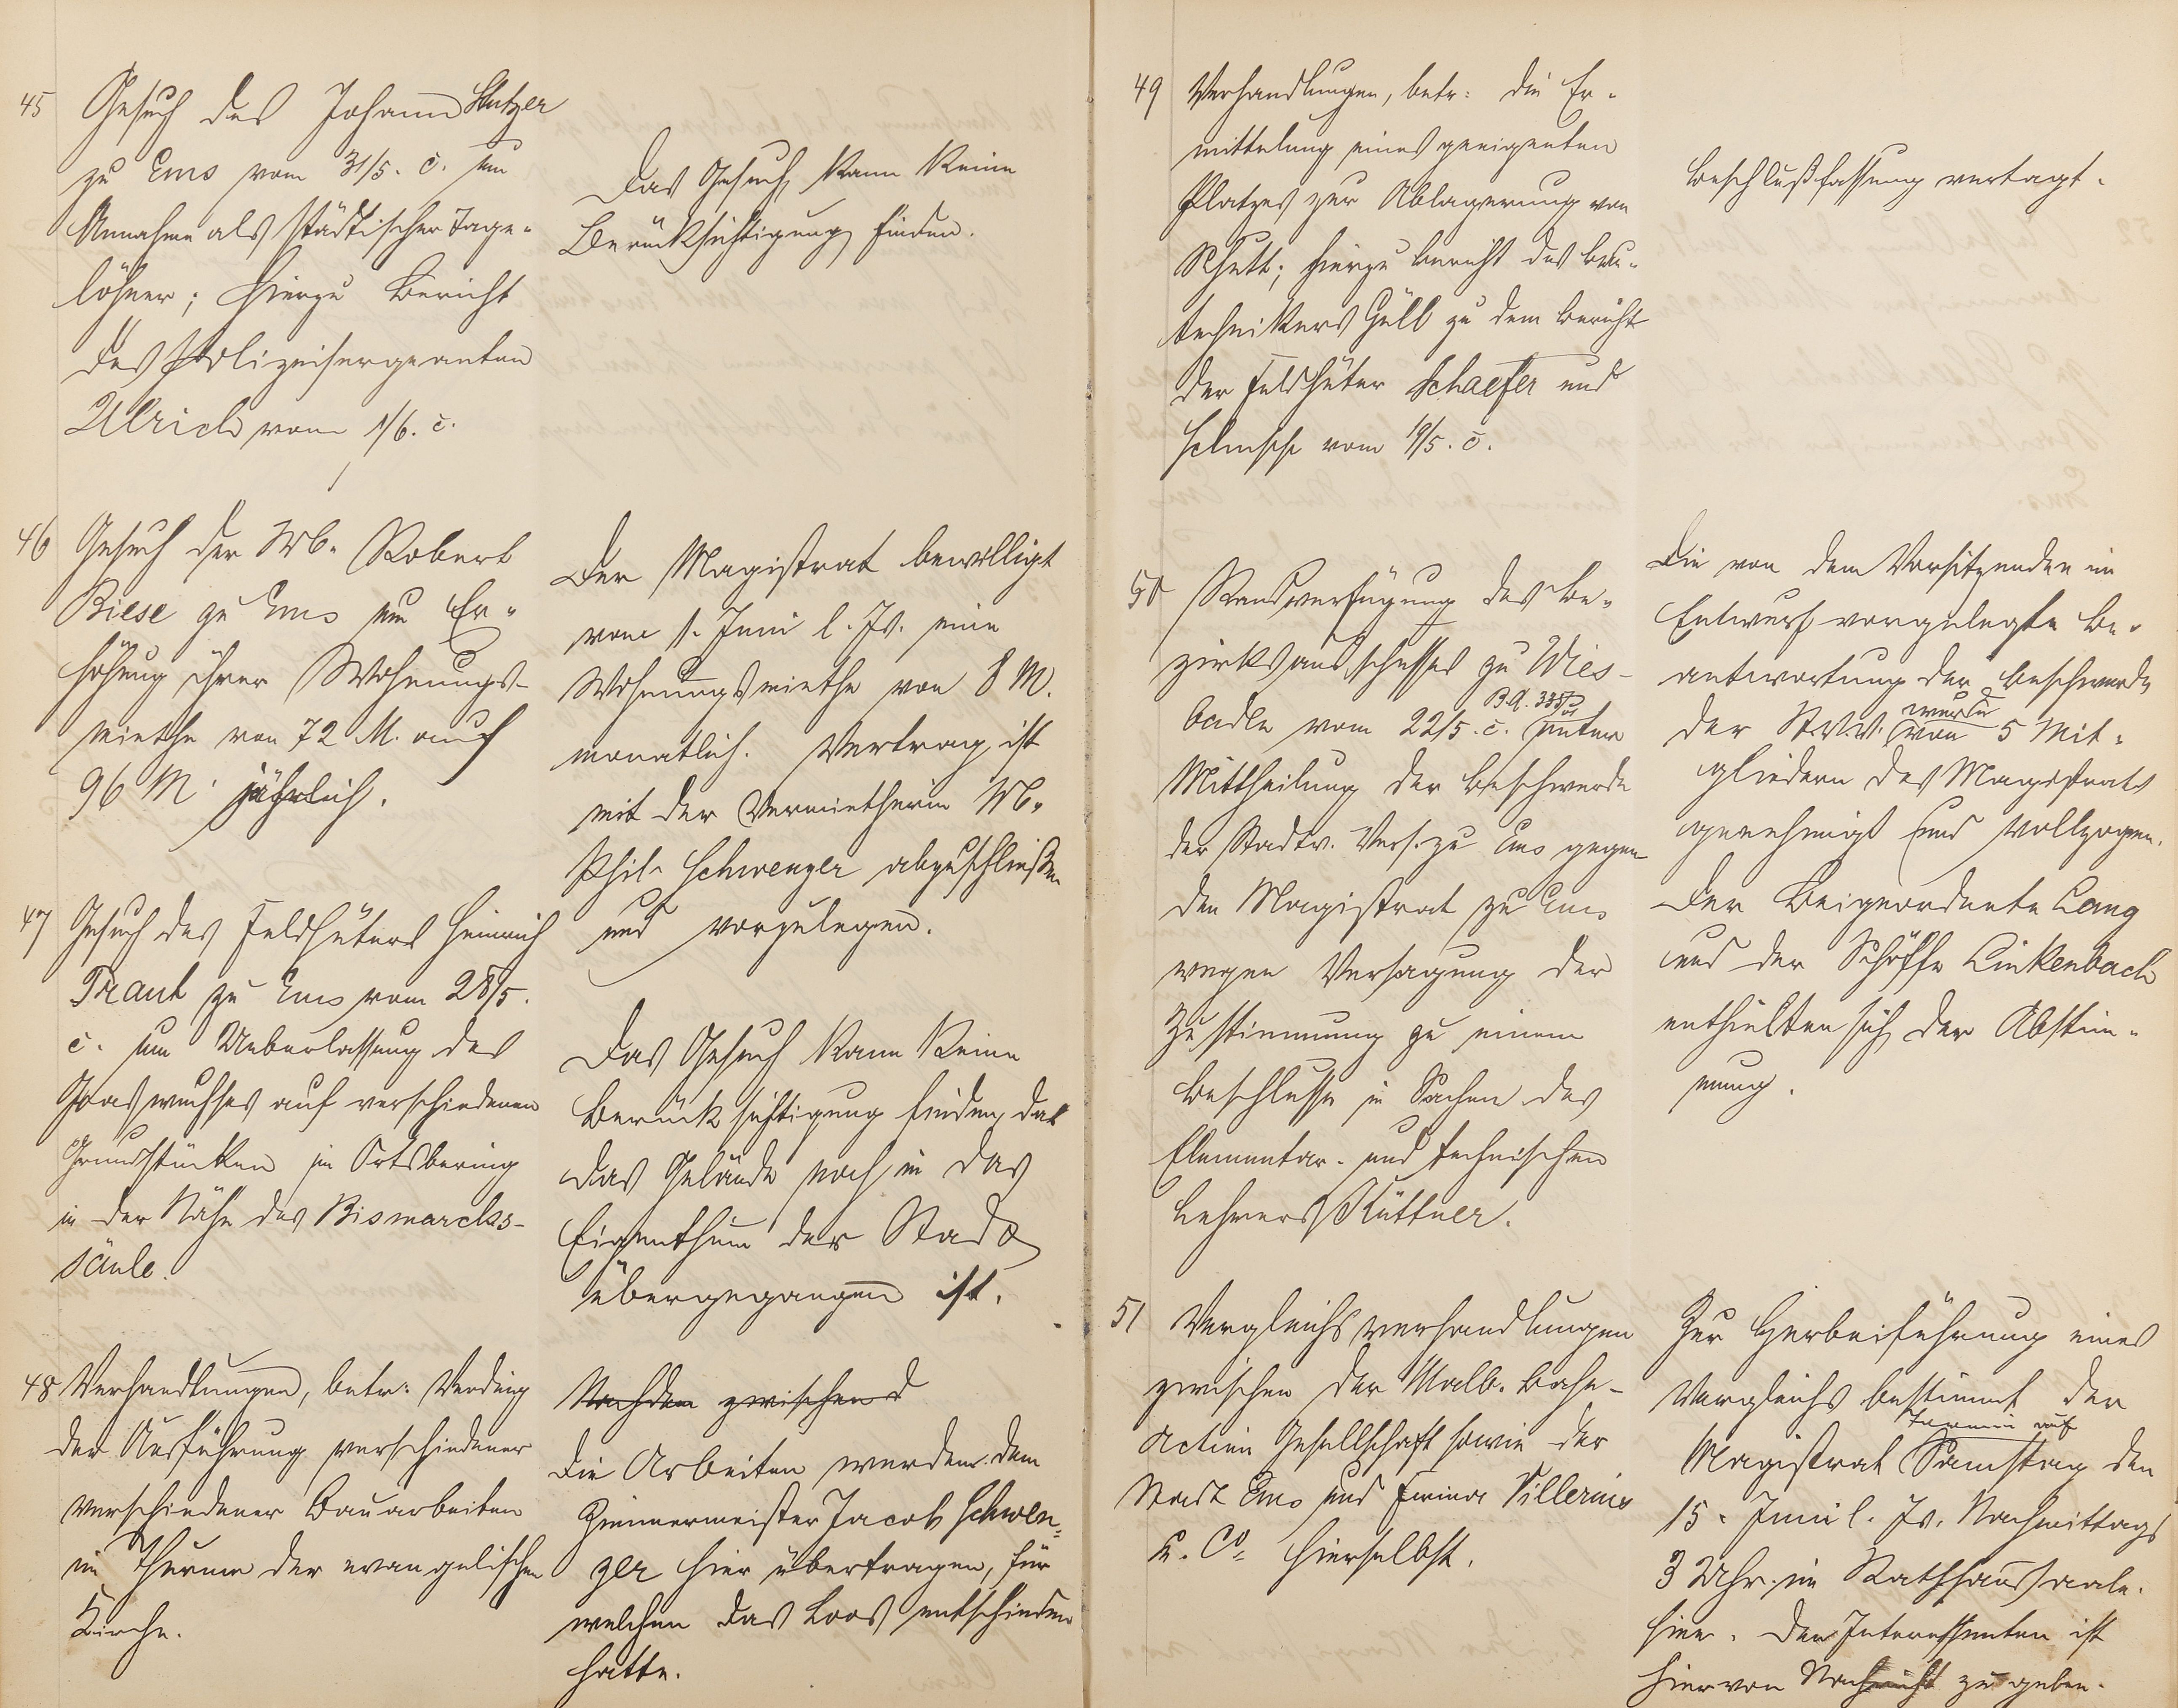 45
Gesuch des Johann Stutzer
zu Ems vom 31/5. c. um
Annahme als städtischer Tage-
löhner; hierzu Bericht
des Polizeisergeanten
Ulrich vom 1/6. c.
Das Gesuch kann keine
Berücksichtigung finden.
46
Gesuch der Wb. Robert
Biese zu Ems um Er-
höhung ihrer Wohnungs-
miethe von 72 M. auf
96 M. jährlich.
Der Magistrat bewilligt
vom 1. Juni l. Js. eine
Wohnungsmiethe von 8 M.
monatlich. Vertrag ist
mit der Vermietherin Wb.
Phil. Schwenzer abzuschließen
und vorzulegen.
47
Gesuch des Feldhüters Heinrich
Traut zu Ems vom 28/5.
c. um Ueberlassung des
Graswuchses auf verschiedenen
Grundstücken im Ortsbering
in der Nähe der Bismarcks-
säule.
Das Gesuch kann keine
Berücksichtigung finden, da
das Gelände noch in das
Eigenthum der Stadt
übergegangen ist.
48
Verhandlungen, betr: Verding
der Ausführung verschiedener
verschiedener Bauarbeiten
im Thurme der evangelischen
Kirche.
Nachdem zwischen d
Die Arbeiten werden dem
Zimmermeister Jacob Schwen-
zer hier übertragen, für
welchen das Loos entschieden
hatte.
49
Verhandlungen, betr: die Er-
mittelung eines geeigneten
Platzes zur Ablagerung von
Schutt; hierzu Bericht des Bau-
technikers Güll zu dem Bericht
der Feldhüter Schaefer und
vom 19/5. c.
Beschlußfassung vertagt.
50
Randverfügung des Be-
zirksausschusses zu Wies-
baden vom 22/5. c. B.A. unter
Mittheilung der Beschwerde
der Stadtv. Vers. zu Ems gegen
den Magistrat zu Ems
wegen Versagung der
Zustimmung zu einem
Beschlusse in Sachen des
Elementar- und technischen
Lehrers Küttner.
Die von dem Vorsitzenden im
Entwurf vorgelegte Be-
antwortung der Beschwerde
der St.V.V. wurde von 5 Mit-
gliedern des Magistrats
genehmigt und vollzogen.
Der Beigeordnete Lang
und der Schöffe Linkenbach
enthielten sich der Abstim-
mung.
51
Vergleichsverhandlungen
zwischen der Malb. Bahn-
Actien Gesellschaft sowie der
Stadt Ems und Firma Villerius
u. Co. hierselbst.
Zur Herbeiführung eines
Vergleichs bestimmt der
Magistrat Termin auf Samstag den
15. Juni l. Js. Nachmittags
3 Uhr im Rathhaussaale
hier. Den Interessenten ist
hiervon Nachricht zu geben.